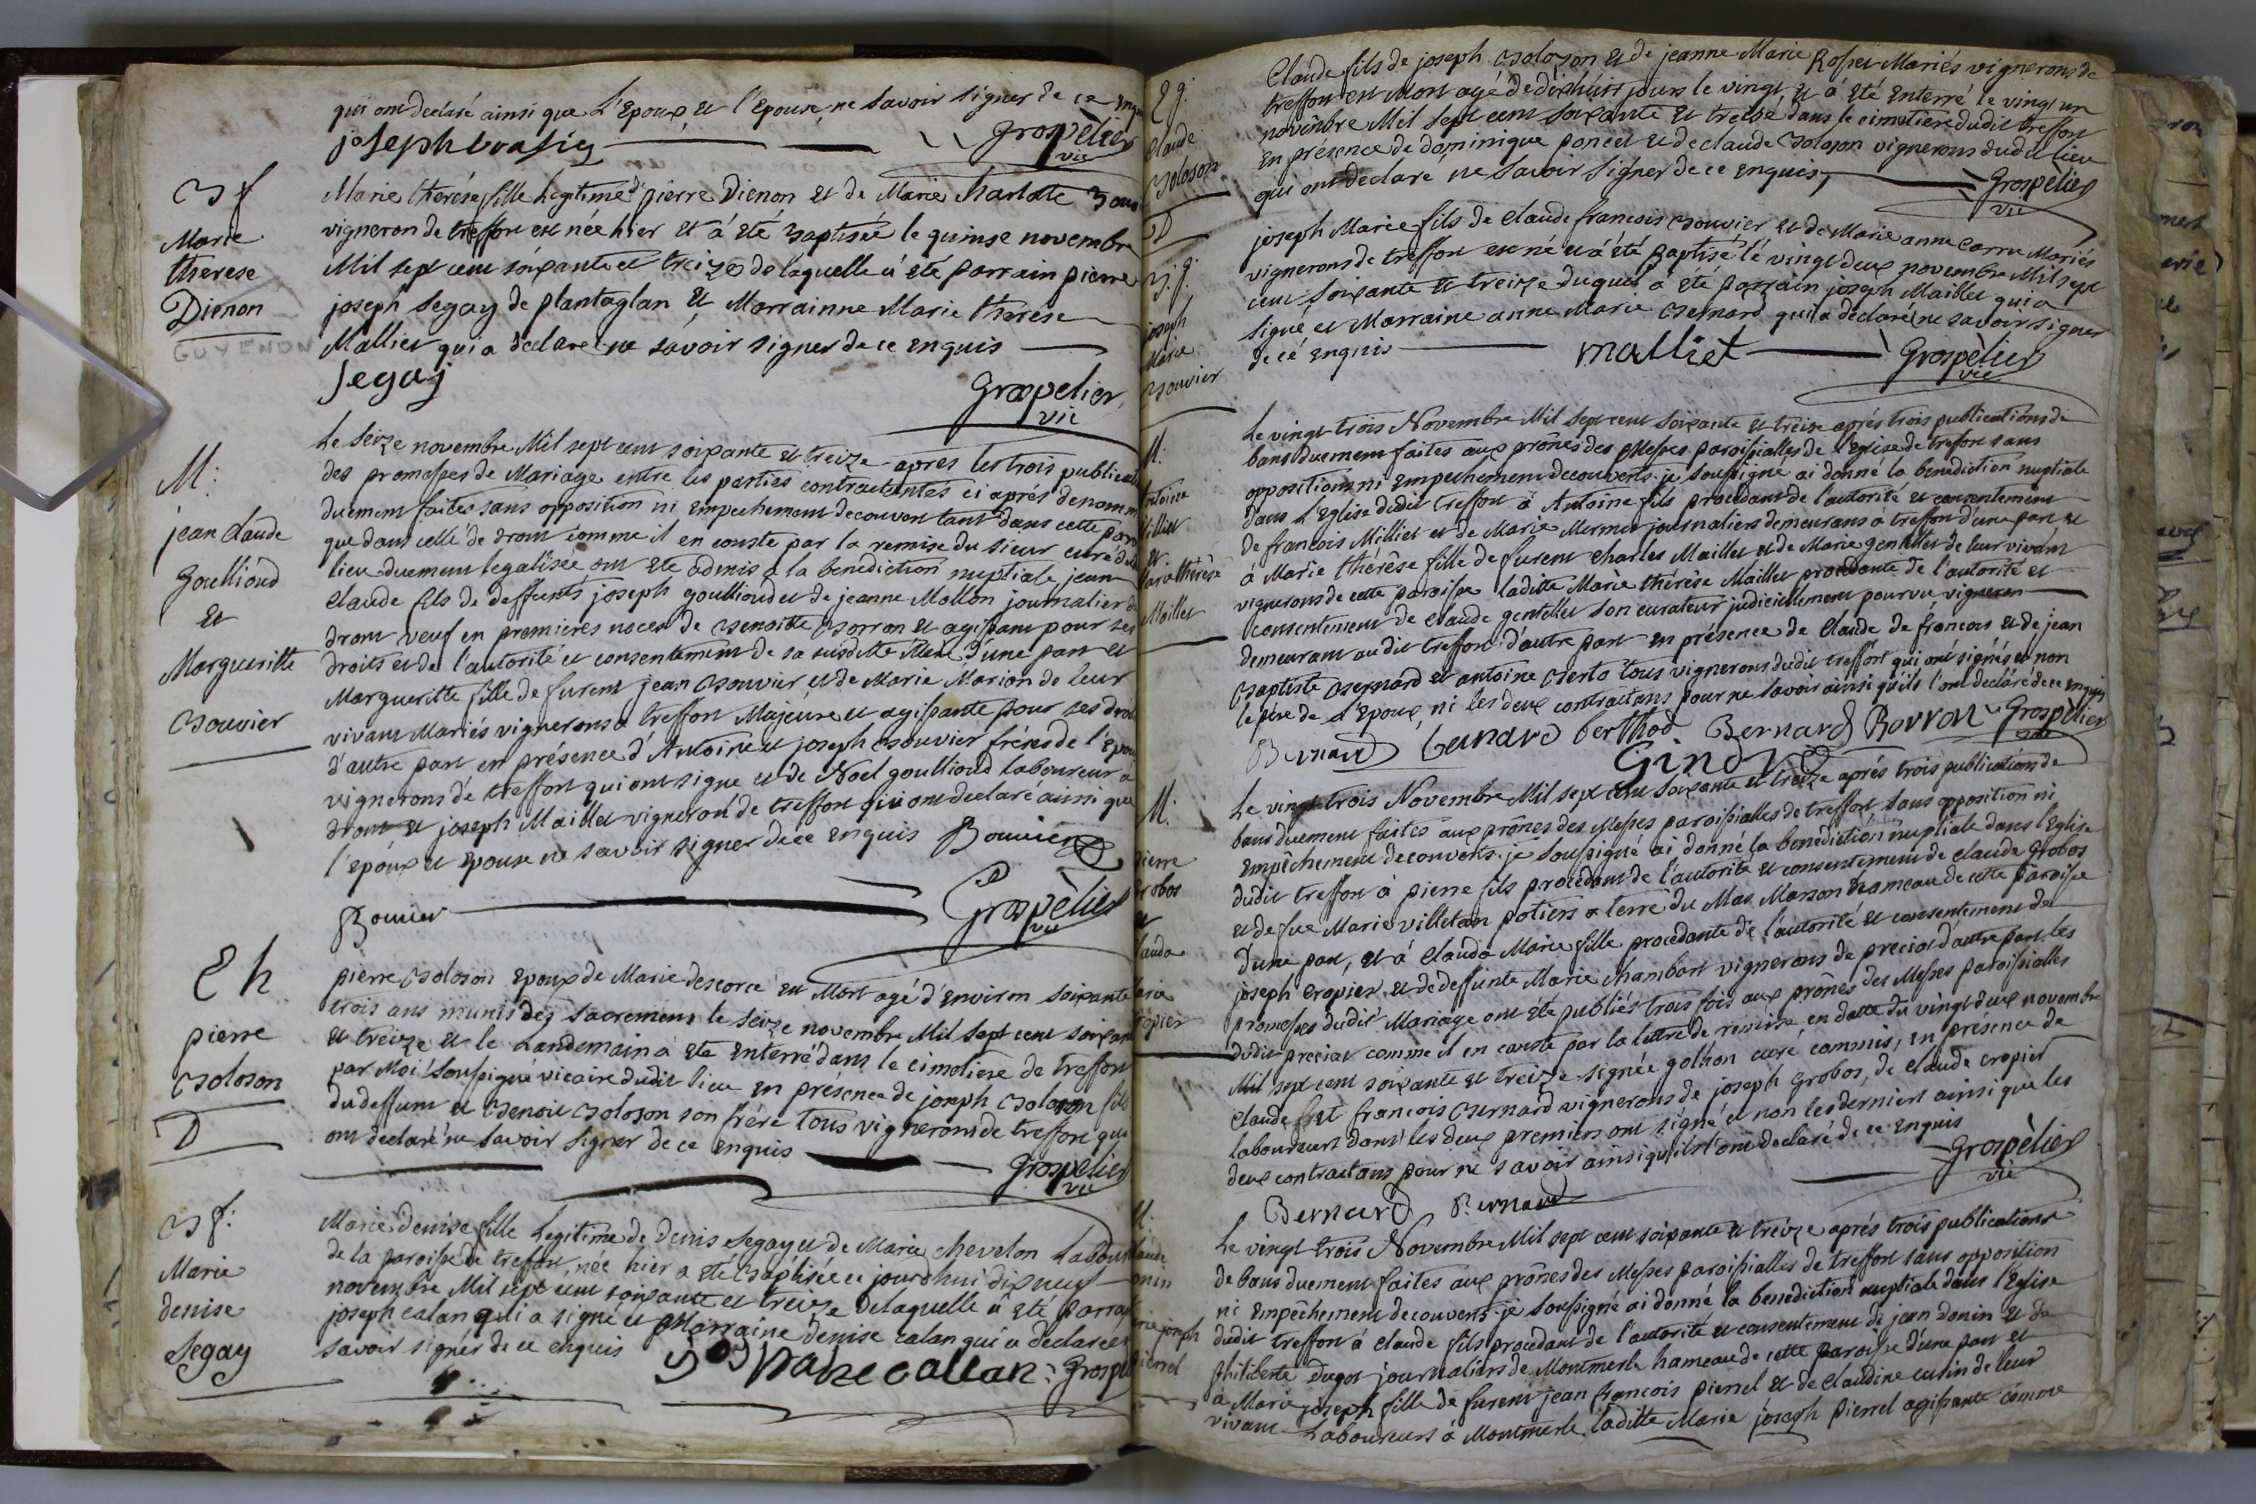 qui ont declaré ainsi que L'Epoux et l'Epouse, ne savoir signer de ce enquis
joseph
Grospèlier
vic
Bf
Marie
therese
Dienon
GUYENON
Marie therése fille Legitime d. pierre Dienon et de Marie charlote
vigneron de treffort est née hier et à été Baptisée le quinse novembre
Mil sept cent soixante et treize de laquelle à été parrain pierre
joseph Segay de plantaglan et Marrainne Marie therese
Malliet qui a declaré ne sávoir signer de ce enquis
Segaj
Grospelier
vic
M:
jean claude
Goullioud
et
Margueritte
Bouvier
Le Seize novembre Mil sept cent soixante et treize apres les trois publicat
des promesses de Mariage entre les parties contractantes ci aprés denomm
duement faites sans opposition ni empechement decouvert tant dans cette par
que dans celle de drom comme il en conste par la remise du sieur curé du
lieu duement legalisée ont été admis à la benediction nuptiale jean
claude fils de deffunts joseph goullioud et de jeanne Mollon journalier de
drom veuf en premieres noces de Benoitte Borron et agissant pour ses
droits et de l'autorité et consentement de sa susditte Mere d'une part et
Margueritte fille de furent jean Bouvier et de Marie Marion de leur
vivant Mariés vignerons à treffort Majeure et agissante pour ses droits
d'autre part en présence d'Antoine et joseph Bouvier fréres de l'Epou
vignerons de treffort qui ont signe et de Noel goullioud laboureur a
drom et joseph Maillet vigneron de treffort qui ont declaré ainsi que
l'epoux et Epouse ne savoir signer de ce enquis Bouvier
Bouvier
Grospèlier
vic
Eh
pierre
Boloson
D
pierre Boloson Epoux de Marie descorce est Mort agé d'environ soixante
trois ans munis des sacremens le seize novembre Mil sept cent soixante
et treize et le Landemain à eté enterré dans le cimetiere de treffort
par Moi soussigne vicaire dudit lieu en presence de joseph Boloson fils
du deffunt et Benoit Boloson son frére tous vignerons de treffort qui
ont declaré ne savoir signer de ce enquis
Grospelier
vic
Bf:
Marie
denise
Segay
Marie denise fille Legitime de Denis Segay et de Marie chevelon Labour
de la paroisse de trefort née hier a été Baptisée ce jourd'hui dixneuf
novembre Mil sept cent soixante et treize Delaquelle à été parrain
joseph calan qui a signé et Marraine denise calan qui a declaré ne
savoir signér de ce enquis
callan Grospel
Eg:
claude
Boloson
D
Claude fils de joseph Boloson et de jeanne Marie Rosset Mariés vignerons de
treffort est Mort agé de dixhuit jours le vingt et à été enterré le vingt un
novembre Mil sept cent soixante et treise dans le cimetiére dudit treffort
En présence de dominique poncet et de claude Boloson vignerons dudit lieu
qui ont declaré ne savoir signer de ce enquis,
Grospèlier
vic
B:g:
joseph
Marie
Bouvier
joseph Marie fils de claude francois Bouvier et de Marie anne Carru Mariés
vignerons de treffort est né et à été Baptisé le vingt deux novembre Mil sept
cent soixante et treize duquel a été parrain joseph Maillet qui a
signé et Marraine anne Marie Bernard qui à declaré ne savoir signer
de cé enquis
malliet
Grospèlier
vic
M:
Antoine
Milliet
et
Marie thérèse
Maillet
Le vingt trois Novembre Mil sept cent soixante et treize aprés trois publications de
bans duement faites aux prônes des Messes paroissialles de l'Eglise de treffort sans
oppositions ni empechement decouverts. je soussigne ai donné la benediction nuptiale
dans l'Eglise dudit treffort à Antoine fils procedant de l'autorité et consentement
de francois Milliet et de Marie Mermet journaliers demeurans à treffort d'une part et
à Marie thérêse fille de furent charles Maillet et de Marie gentillet de leur vivant
vignerons de cette paroisse laditte Marie thérêse Maillet procedante de l'autorité et
consentement de claude gentillet son curateur judiciellement pourvu vigneron
demeurant audit treffort d'autre part en présence de claude de francois et de jean
Baptiste Bernard et antoine Berto tous vignerons dudit treffort qui ont signés et non
le pére de l'Epoux ni les deux contractans pour ne savoir ainsi qu'ils l'ont declaré de ce enquis
Bernard bernard berthod Bernard Borron Grospèlier
vic
Gindre
M:
pierre
Grobos
et
clauda
Marie
cropier
Le vingt trois Novembre Mil sept cent soixante et treize aprés trois publications de
bans duement faites aux prônes des Messes paroissialles de treffort sans opposition ni
empêchement decouverts. je soussigné ai donné la benediction nuptiale dans l'Eglise
dudit treffort à pierre fils procedant de l'autorité et consentement de claude grobos
et de fue Marie villetan potiers a terre du Mas Marson hameau de cette paroisse
d'une part, et à Clauda Marie fille procedante de l'autorité et consentement de
joseph cropier et de deffunte Marie chambart vignerons de preciat d'autre part. les
promesses dudit Mariage ont été publiés trois fois aux prônes des Messes paroissialles
dudit preciat comme il en conste par la lettre de remise en datte du vingt deux novembre
Mil sept cent soixante et treize signée golhon curé commis, en présence de
Claude fret francois Bernard vignerons de joseph Grobos, de claude cropier
laboureurs dont les deux premiers ont signé et non les derniers ainsi que les
deux contractans pour ne savoir ainsi qu'ils l'ont declaré de ce enquis
Grospèlier
vic
Bernard Bernard
M:
claude
Donin
Marie joseph
pierrel
Le vingt trois Novembre Mil sept cent soixante et treize aprés trois publications
de bans duement faites aux prônes des Messes paroissialles de treffort sans opposition
ni empêchement decouverts. je soussigné ai donné la benediction nuptiale dans l'Eglise
dudit treffort à claude fils procedant de l'autorité et consentement de jean donin et de
philiberte Dugot journaliers de Montmerle hameau de cette paroisse d'une part et
à Marie joseph fille de furent jean francois pierrel et de claudine cutin de leur
vivant Laboureurs à Montmerle laditte Marie joseph pierrel agissante comme